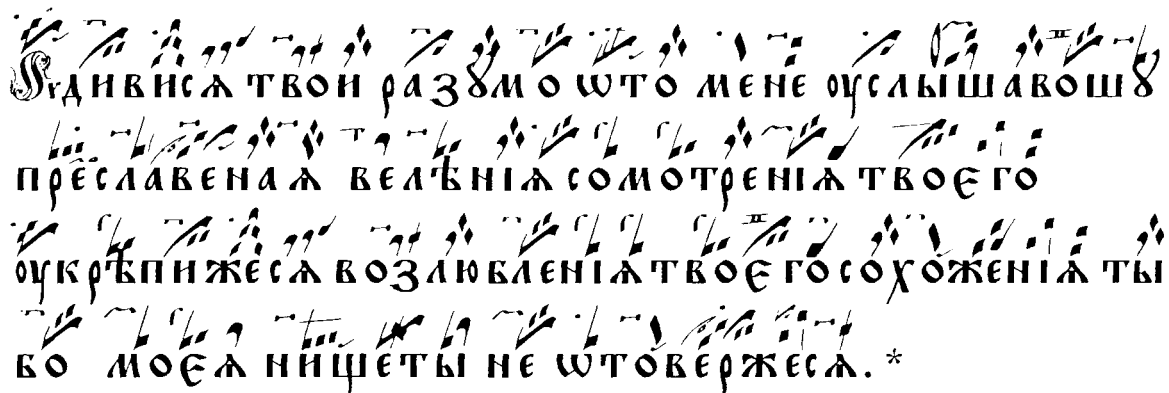 Удивися твои разꙋмо ѿто мене оуслышавошꙋ
преславеная велѣнїѧ сомотренїѧ твоєго
оукрѣпижесѧ возлюбленїѧ твоєго сохоженїѧ ты
бо моєѧ нищеты не ѿтовержесѧ. *